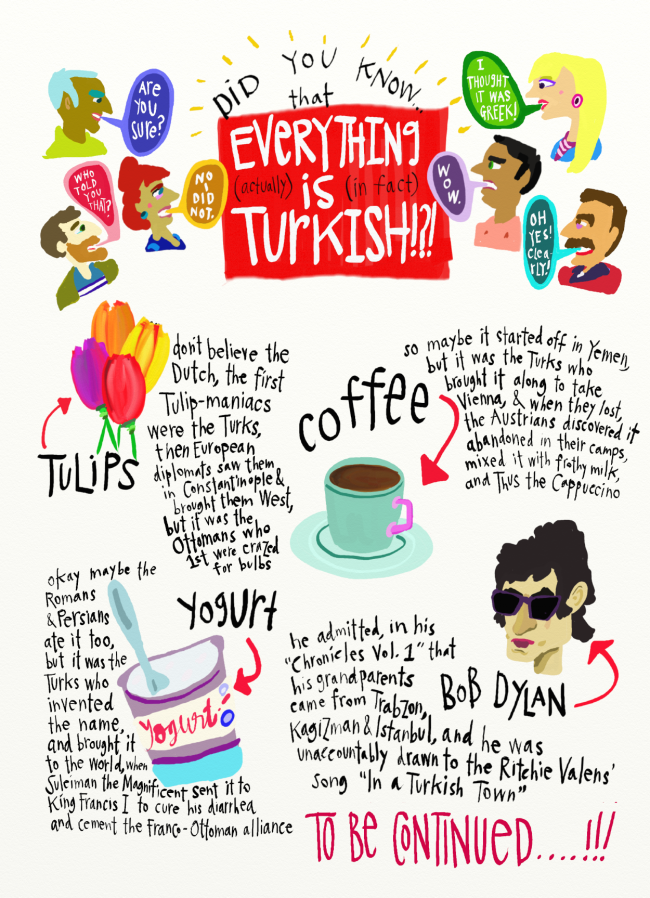 DID YOU KNOW...
that
EVERYTHING
(actually) is (in fact)
TURKISH!?!
ARE
YOU
SURE?
WHO
TOLD
YOU
THAT?
NO
I
DID
NOT.
I
THOUGHT
IT WAS
GREEK!
WOW.
OH
YES!
Clea-
rly!
TULIPS
don't believe the
Dutch, the first
Tulip-maniacs
were the Turks,
then European
diplomats saw them
in Constantinople &
brought them West,
but it was the
Ottomans who
1st were crazed
for bulbs
coffee
so maybe it started off in Yemen,
but it was the Turks who
brought it along to take
Vienna, & when they lost,
the Austrians discovered it
abandoned in their camps,
mixed it with frothy milk,
and Thus the Cappuccino
Yogurt
okay maybe the
Romans
& Persians
ate it too,
but it was the
Turks who
invented
the name,
and brought it
to the world, when
Suleiman the Magnificent sent it to
King Francis I to cure his diarrhea
and cement the Franco-Ottoman alliance
Yogurt
BOB DYLAN
he admitted, in his
"Chronicles Vol. 1" that
his grandparents
came from Trabzon,
Kagizman & Istanbul, and he was
unaccountably drawn to the Ritchie Valens'
song "In a Turkish Town"
TO BE CONTINUED....!!!